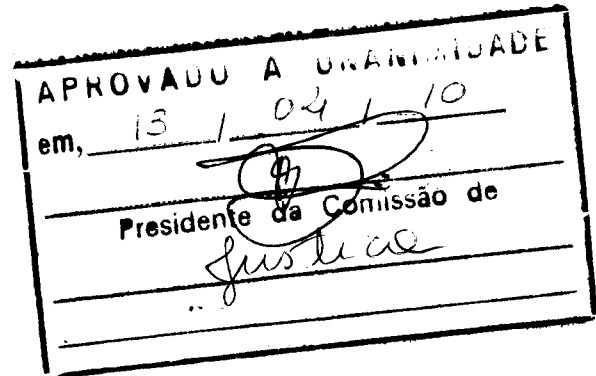 APROVADO A UNANIMIDADE
em, 13 / 04 / 10
Presidente da Comissão de
Justica